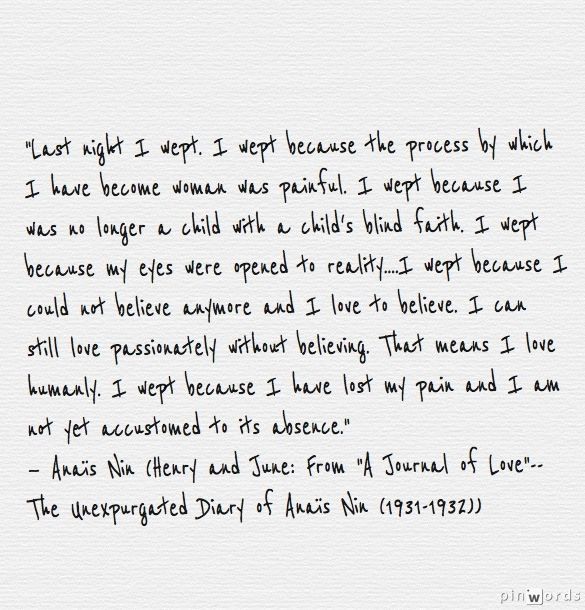 "Last night I wept. I wept because the process by which
I have become woman was painful. I wept because I
was no longer a child with a child's blind faith. I wept
because my eyes were opened to reality....I wept because I
could not believe anymore and I love to believe. I can
still love passionately without believing. That means I love
humanly. I wept because I have lost my pain and I am
not yet accustomed to its absence."
- Anaïs Nin (Henry and June: From "A Journal of Love"--
The Unexpurgated Diary of Anaïs Nin (1931-1932))
pinwords